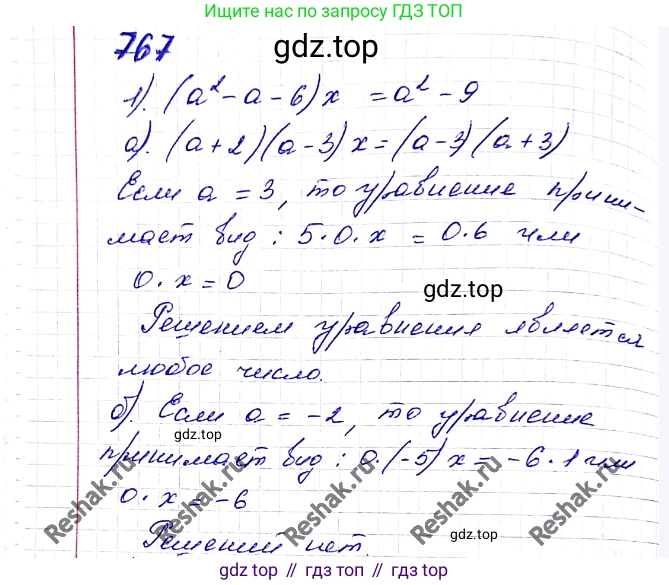 Ищите нас по запросу ГДЗ ТОП
767
gdz.top
1). (a² - a - 6) x = a² - 9
а). (a + 2) (a - 3) x = (a - 3) (a + 3)
Если a = 3, то уравнение прини-
мает вид : 5 · 0 · x = 0 · 6 или
0 · x = 0
gdz.top
Решением уравнения является
любое число.
б). Если a = -2, то уравнение
принимает вид : 0 · (-5) x = -6 · 1 или
gdz.top
0 · x = -6
Reshak.ru Reshak.ru Reshak.ru
Решений нет.
gdz top // гдз топ // гдз.top